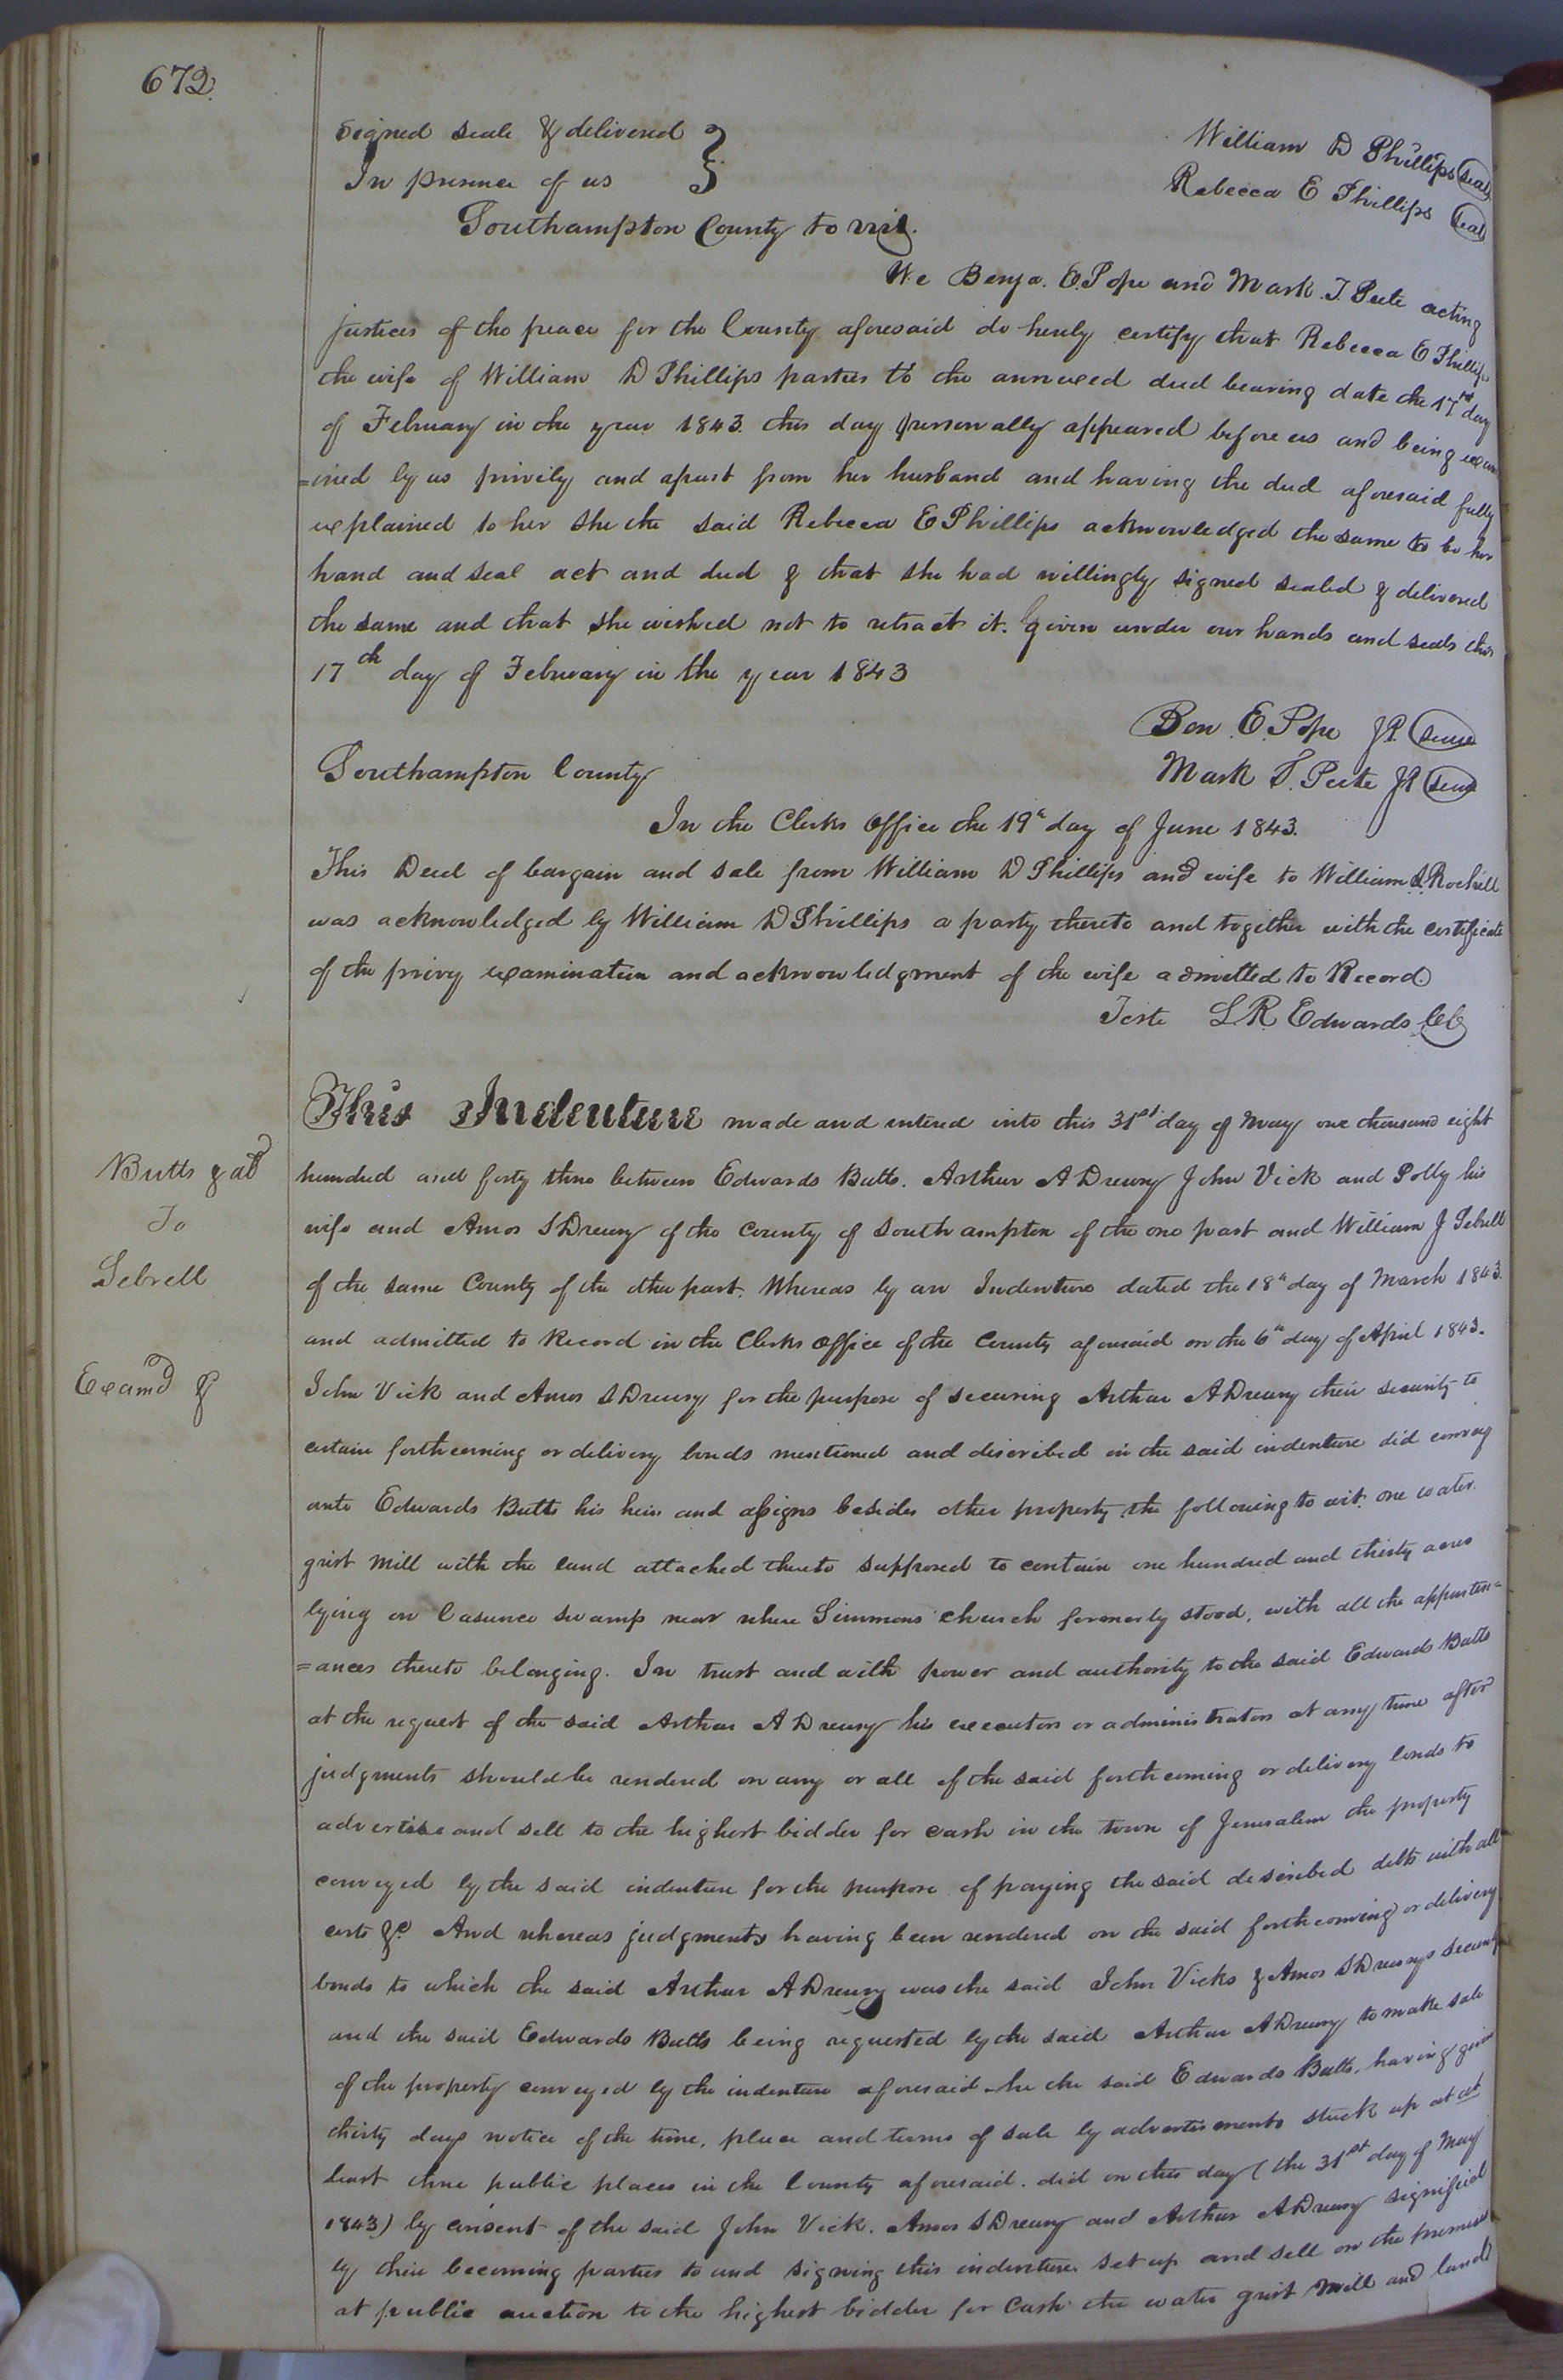 672.
Signed seale & delivered
In presence of us
William D Phillips (seal)
Rebecca E Phillips (seal)
Southampton County to wit.
We Benja. E. Pope and Mark T. Peete acting
justices of the peace for the County aforesaid do hereby certify that Rebecca E Phillips
the wife of William D Phillips parties to the annexed deed bearing date the 17th day
of February in the year 1843. this day personally appeared before us and being exam
=ined by us privily and apart from her husband and having the deed aforesaid fully
explained to her she the said Rebecca E Phillips acknowledged the same to be her
hand and seal act and deed & that she had willingly signed sealed & delivered
the same and that she wished not to retract it. Given under our hands and seals this
17th day of February in the year 1843
Ben. E. Pope J.P. (seal)
Southampton County
Mark T. Peete JP (seal)
In the Clerks Office the 19th day of June 1843.
This Deed of bargain and sale from William D Phillips and wife to William S. Rochell
was acknowledged by William D Phillips a party thereto and together with the certificate
of the privy examination and acknowledgment of the wife admitted to Record.
Teste L R Edwards CC
This Indenture made and entered into this 31st day of May one thousand eight
Butts & als
To
Sebrell
Examd &
hundred and forty three between Edwards Butts. Arthur A Drewry John Vick and Polly his
wife and Amos S Drewry of the County of Southampton of the one part and William J Sebrell
of the same County of the other part. Whereas by an Indenture dated the 18th day of March 1843.
and admitted to Record in the Clerks Office of the County aforesaid on the 6th day of April 1843.
John Vick and Amos S Drewry for the purpose of securing Arthur A Drewry their security to
certain forthcoming or delivery bonds mentioned and discribed in the said indenture did convey
unto Edwards Butts his heirs and assigns besides other property the following to wit. one water
grist mill with the land attached thereto supposed to contain one hundred and thirty acres
lying on swamp near where Simmons church formerly stood, with all the appurten=
=ances thereto belonging. In trust and with power and authority to the said Edwards Butts
at the request of the said Arthur A Drewry his executors or administrators at any time after
judgments should be rendered on any or all of the said forthcoming or delivery bonds to
advertise and sell to the highest bidder for cash in the town of Jerusalem the property
conveyed by the said indenture for the purpose of paying the said described debts with all
costs &c. And whereas judgments having been rendered on the said forthcoming or delivery
bonds to which the said Arthur A Drewry was the said John Vicks & Amos S Drewrys security
and the said Edwards Butts being requested by the said Arthur A Drewry to make sale
of the property conveyed by the indenture aforesaid he the said Edwards Butts, having given
thirty days notice of the time, place and terms of sale by advertisements stuck up at at
least three public places in the County aforesaid. did on this day (the 31st day of May
1843) by consent of the said John Vick. Amos S Drewry and Arthur A Drewry signified
by their becoming parties to and signing this indenture set up and sell on the premises
at public auction to the highest bidder for Cash the water grist Mill and land